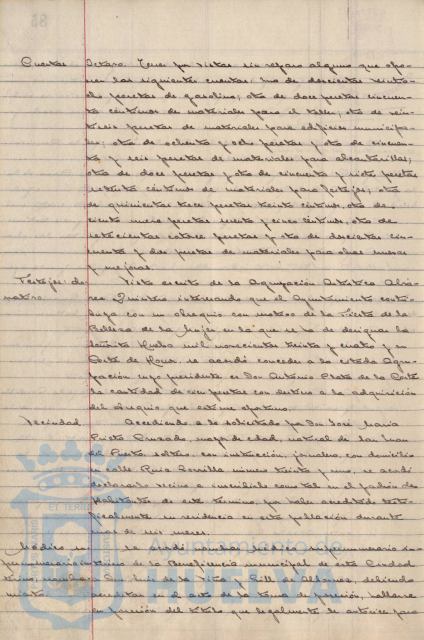 Cuentas Octavo. Tener por vistas sin reparo alguno que opo-
ner las siguientes cuentas: una de doscientas veinti-
dos pesetas de gasolina; otra de doce pesetas cincuen-
ta céntimos de materiales para el taller; otra de vein-
tiseis pesetas de materiales para edificios municipa-
les; otra de ochenta y ocho pesetas y otra de cincuen-
ta y seis pesetas de materiales para alcantarillas;
otra de doce pesetas y otra de cincuenta y siete pesetas
setenta céntimos de materiales para festejos; otra
de quinientas trece pesetas veinte céntimos, otra de
ciento nueve pesetas y cinco céntimos, otra de
setecientas catorce pesetas y otra de doscientas cin-
cuenta y dos pesetas de materiales para obras nuevas
y mejoras.
Festejos: do-
nativo. Visto escrito de la Agrupación Artística Alva-
rez Quintero interesando que el Ayuntamiento contri-
buya con un obsequio con motivo de la Fiesta de la
Belleza de la Mujer en la que se ha de designar la
Señorita Huelva mil novecientos treinta y cuatro y su
Corte de Honor, se acordó conceder a la citada Agru-
pación cuyo presidente es Don Antonio Plata de la Corte
la cantidad de cien pesetas con destino a la adquisición
del obsequio que estime oportuno.
Vecindad. Accediendo a lo solicitado por Don José María
Prieto Cruzado, mayor de edad, natural de San Juan
del Puerto, soltero, con instrucción, jornalero, con domicilio
en calle Ruiz Zorrilla número treinta y uno, se acordó
declararlo vecino e inscribirlo como tal en el padrón de
habitantes de este término, por haber acreditado testi-
ficalmente su residencia en esta población durante
mas de seis meses.
Médico su-
pernumerario Se acordó nombrar médico supernumerario in-
terino de la Beneficencia municipal de esta Ciudad
nombra- a Don Luis de la Viña y Gill de Albornoz, debiendo
miento acreditar en el acto de la toma de posesión, hallarse
en posesión del título que legalmente le autorice para
Ayuntamiento de
HUELVA